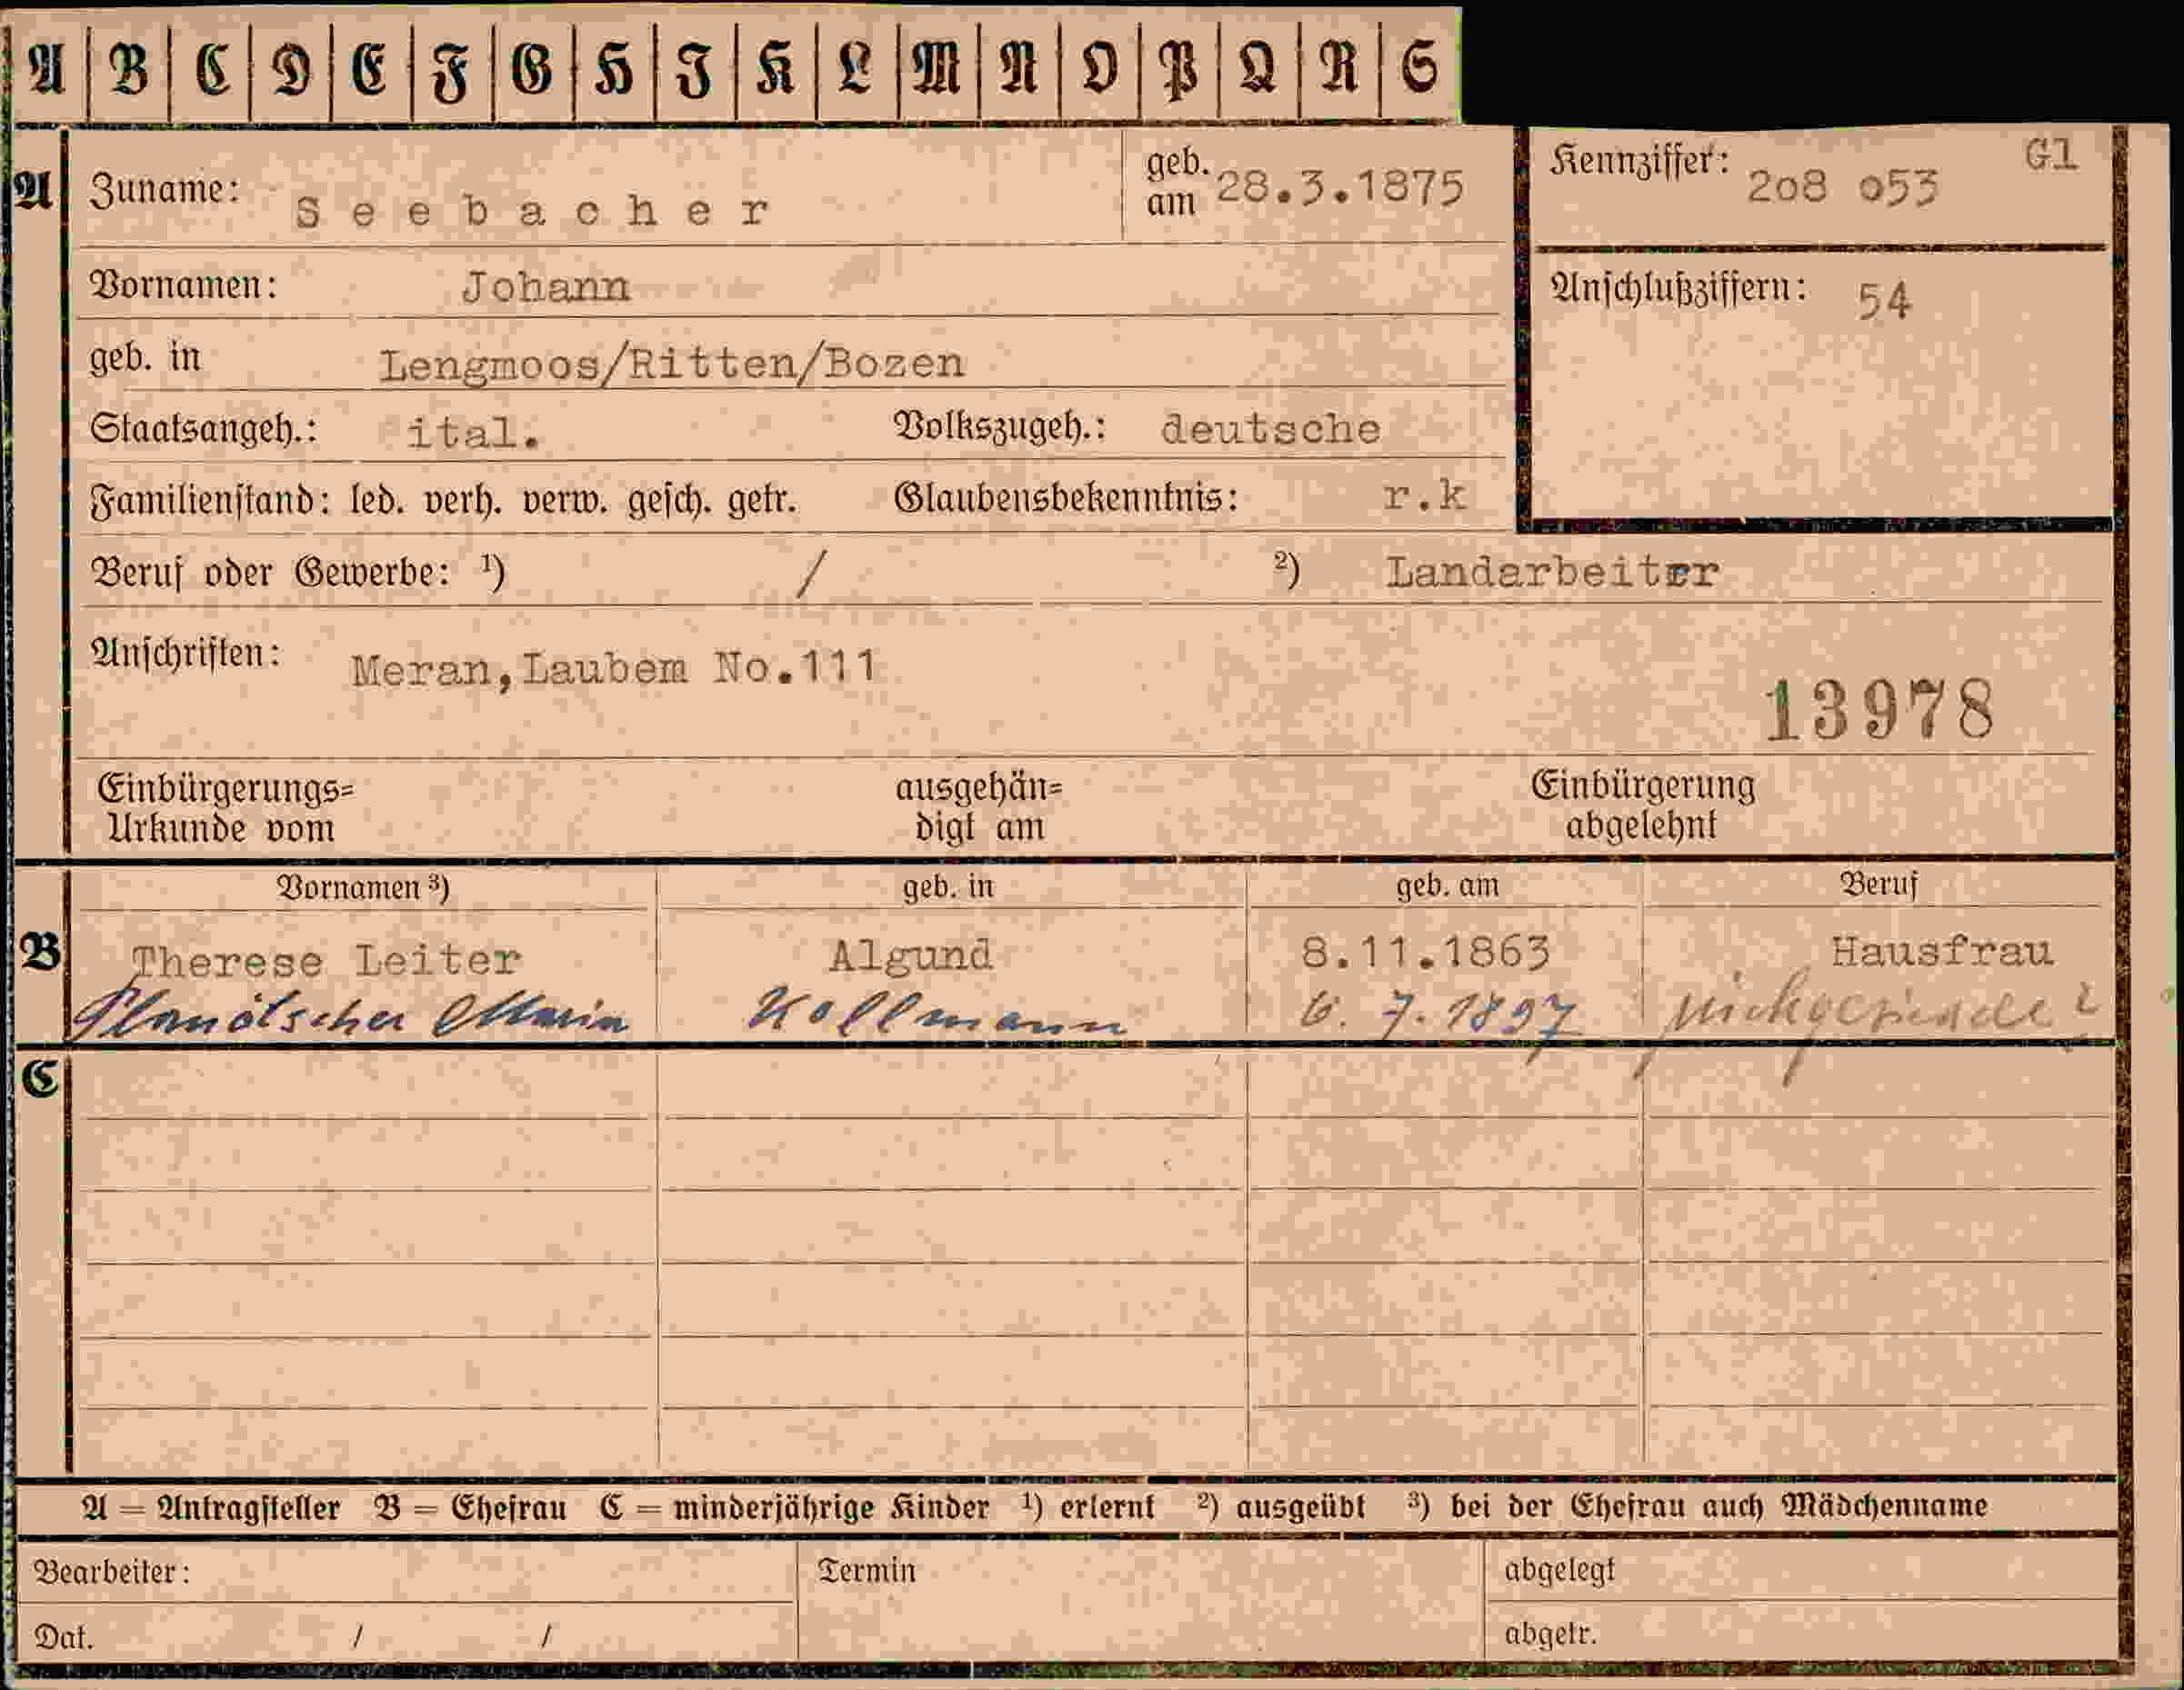 A B C D E F G H I K L M N O P Q R S
A Zuname: Seebacher geb. am 28.3.1875 Kennziffer: 2o8 o53 Gl
Vornamen: Johann Anschlußziffern: 54
geb. in Lengmoos/Ritten/Bozen
Staatsangeh.: ital. Volkszugeh.: deutsche
Familienstand: led. verh. verw. gesch. getr. Glaubensbekenntnis: r.k
Beruf oder Gewerbe: ¹) / ²) Landarbeiter
Anschriften: Meran,Laubem No.111
13978
Einbürgerungs= ausgehän= Einbürgerung
Urkunde vom digt am abgelehnt
Vornamen ³) geb. in geb. am Beruf
B Therese Leiter Algund 8.11.1863 Hausfrau
Maria Kollmann 6. 7. 1897
C
A = Antragsteller B = Ehefrau C = minderjährige Kinder ¹) erlernt ²) ausgeübt ³) bei der Ehefrau auch Mädchenname
Bearbeiter: Termin abgelegt
Dat. / / abgetr.